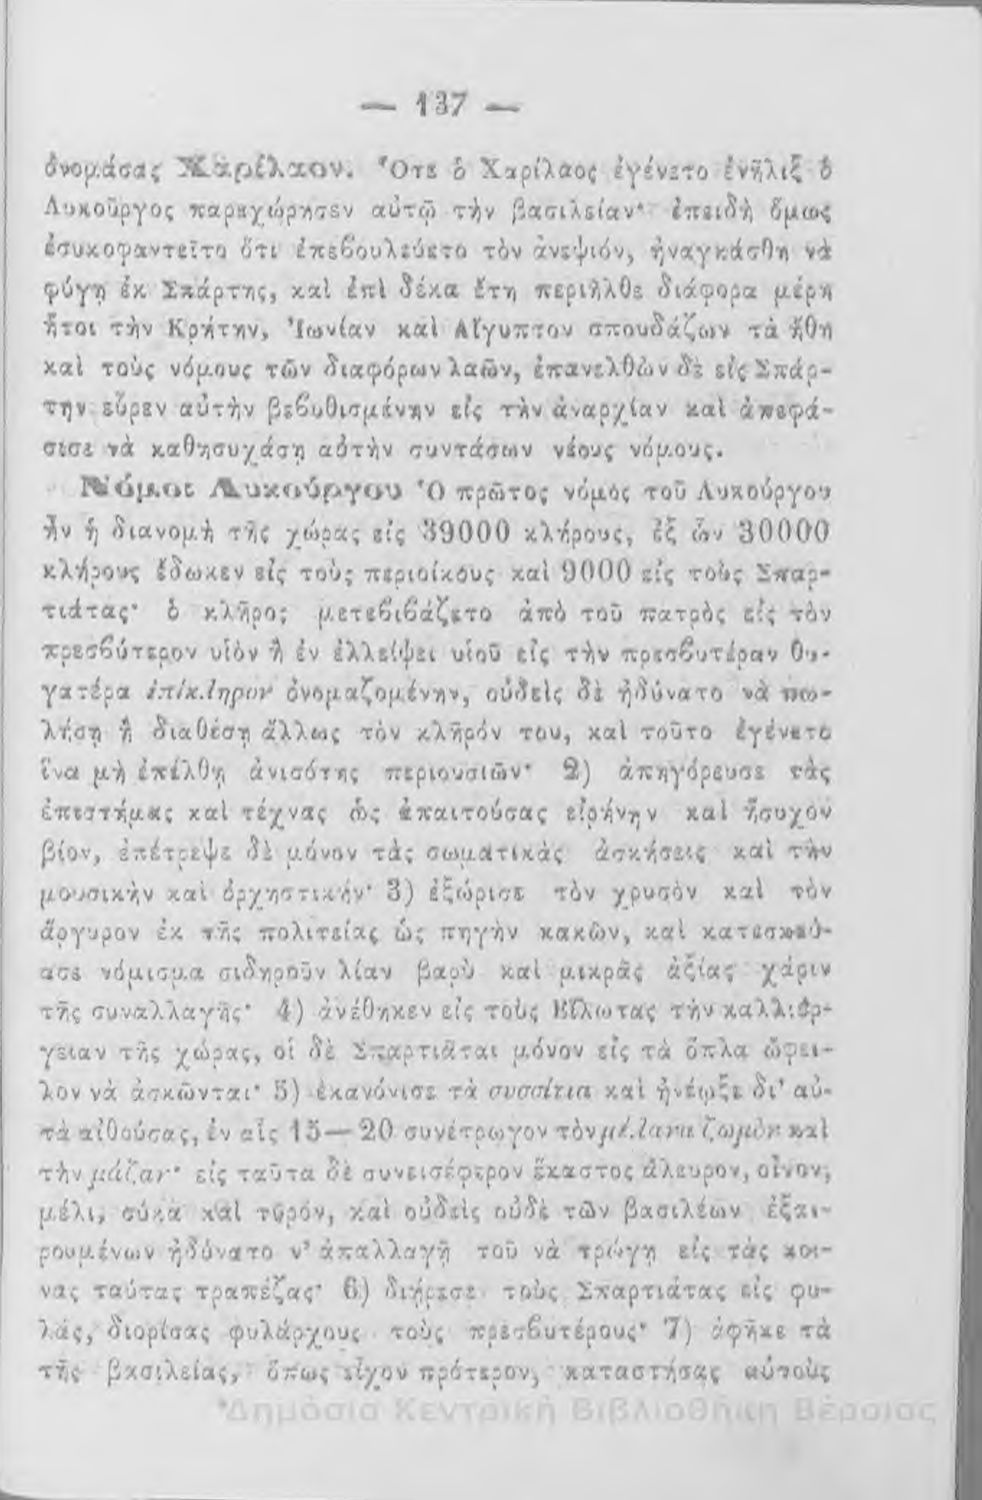 — 137 —
ὀνομάσας Χαρίλαον. Ὅτε ὁ Χαρίλαος ἐγένετο ἐνῆλιξ ὁ
Λυκοῦργος παρεχώρησεν αὐτῷ τὴν βασιλείαν· ἐπειδὴ ὅμως
ἐσυκοφαντεῖτο ὅτι ἐπεβουλεύετο τὸν ἀνεψιόν, ἠναγκάσθη νὰ
φύγῃ ἐκ Σπάρτης, καὶ ἐπὶ δέκα ἔτη περιῆλθε διάφορα μέρη
ἤτοι τὴν Κρήτην, Ἰωνίαν καὶ Αἴγυπτον σπουδάζων τὰ ἤθη
καὶ τοὺς νόμους τῶν διαφόρων λαῶν, ἐπανελθὼν δὲ εἰς Σπάρ-
την εὗρεν αὐτὴν βεβυθισμένην εἰς τὴν ἀναρχίαν καὶ ἀπεφά-
σισε νὰ καθησυχάσῃ αὐτὴν συντάσων νέους νόμους.
Νόμοι Λυκούργου Ὁ πρῶτος νόμος τοῦ Λυκούργου
ἦν ἡ διανομὴ τῆς χώρας εἰς 39000 κλήρους, ἐξ ὧν 30000
κλήρους ἔδωκεν εἰς τοὺς περιοίκους καὶ 9000 εἰς τοὺς Σπαρ-
τιάτας· ὁ κλῆρος μετεβιβάζετο ἀπὸ τοῦ πατρὸς εἰς τὸν
πρεσβύτερον υἱὸν ἢ ἐν ἐλλείψει υἱοῦ εἰς τὴν πρεσβυτέραν θυ-
γατέρα ἐπίκληρον ὀνομαζομένην, οὐδεὶς δὲ ἠδύνατο νὰ πω-
λήσῃ ἢ διαθέσῃ ἄλλως τὸν κλῆρόν του, καὶ τοῦτο ἐγένετο
ἵνα μὴ ἐπέλθῃ ἀνισότης περιουσιῶν· 2) ἀπηγόρευσε τὰς
ἐπιστήμας καὶ τέχνας ὡς ἀπαιτούσας εἰρήνην καὶ ἥσυχον
βίον, ἐπέτρεψε δὲ μόνον τὰς σωματικὰς ἀσκήσεις καὶ τὴν
μουσικὴν καὶ ὀρχηστικήν· 3) ἐξώρισε τὸν χρυσὸν καὶ τὸν
ἄργυρον ἐκ τῆς πολιτείας ὡς πηγὴν κακῶν, καὶ κατεσκεύ-
ασε νόμισμα σιδηροῦν λίαν βαρὺ καὶ μικρᾶς ἀξίας χάριν
τῆς συναλλαγῆς· 4) ἀνέθηκεν εἰς τοὺς Εἵλωτας τὴν καλλιέρ-
γειαν τῆς χώρας, οἱ δὲ Σπαρτιᾶται μόνον εἰς τὰ ὅπλα ὤφει-
λον νὰ ἀσκῶνται· 5) ἐκανόνισε τὰ συσσίτια καὶ ἠνέῳξε δι' αὐ-
τὰ αἰθούσας, ἐν αἷς 15—20 συνέτρωγον τὸν μέλανα ζωμὸν καὶ
τὴν μάζαν· εἰς ταῦτα δὲ συνεισέφερον ἕκαστος ἄλευρον, οἶνον,
μέλι, σύκα καὶ τυρόν, καὶ οὐδεὶς οὐδὲ τῶν βασιλέων ἐξαι-
ρουμένων ἠδύνατο ν' ἀπαλλαγῇ τοῦ νὰ τρώγῃ εἰς τὰς κοι-
νας ταύτας τραπέζας· 6) διῄρεσε τοὺς Σπαρτιάτας εἰς φυ-
λάς, διορίσας φυλάρχους τοὺς πρεσβυτέρους· 7) ἀφῆκε τὰ
τῆς βασιλείας, ὅπως εἶχον πρότερον, καταστήσας αὐτοὺς
Δημόσια Κεντρική Βιβλιοθήκη Βέροιας